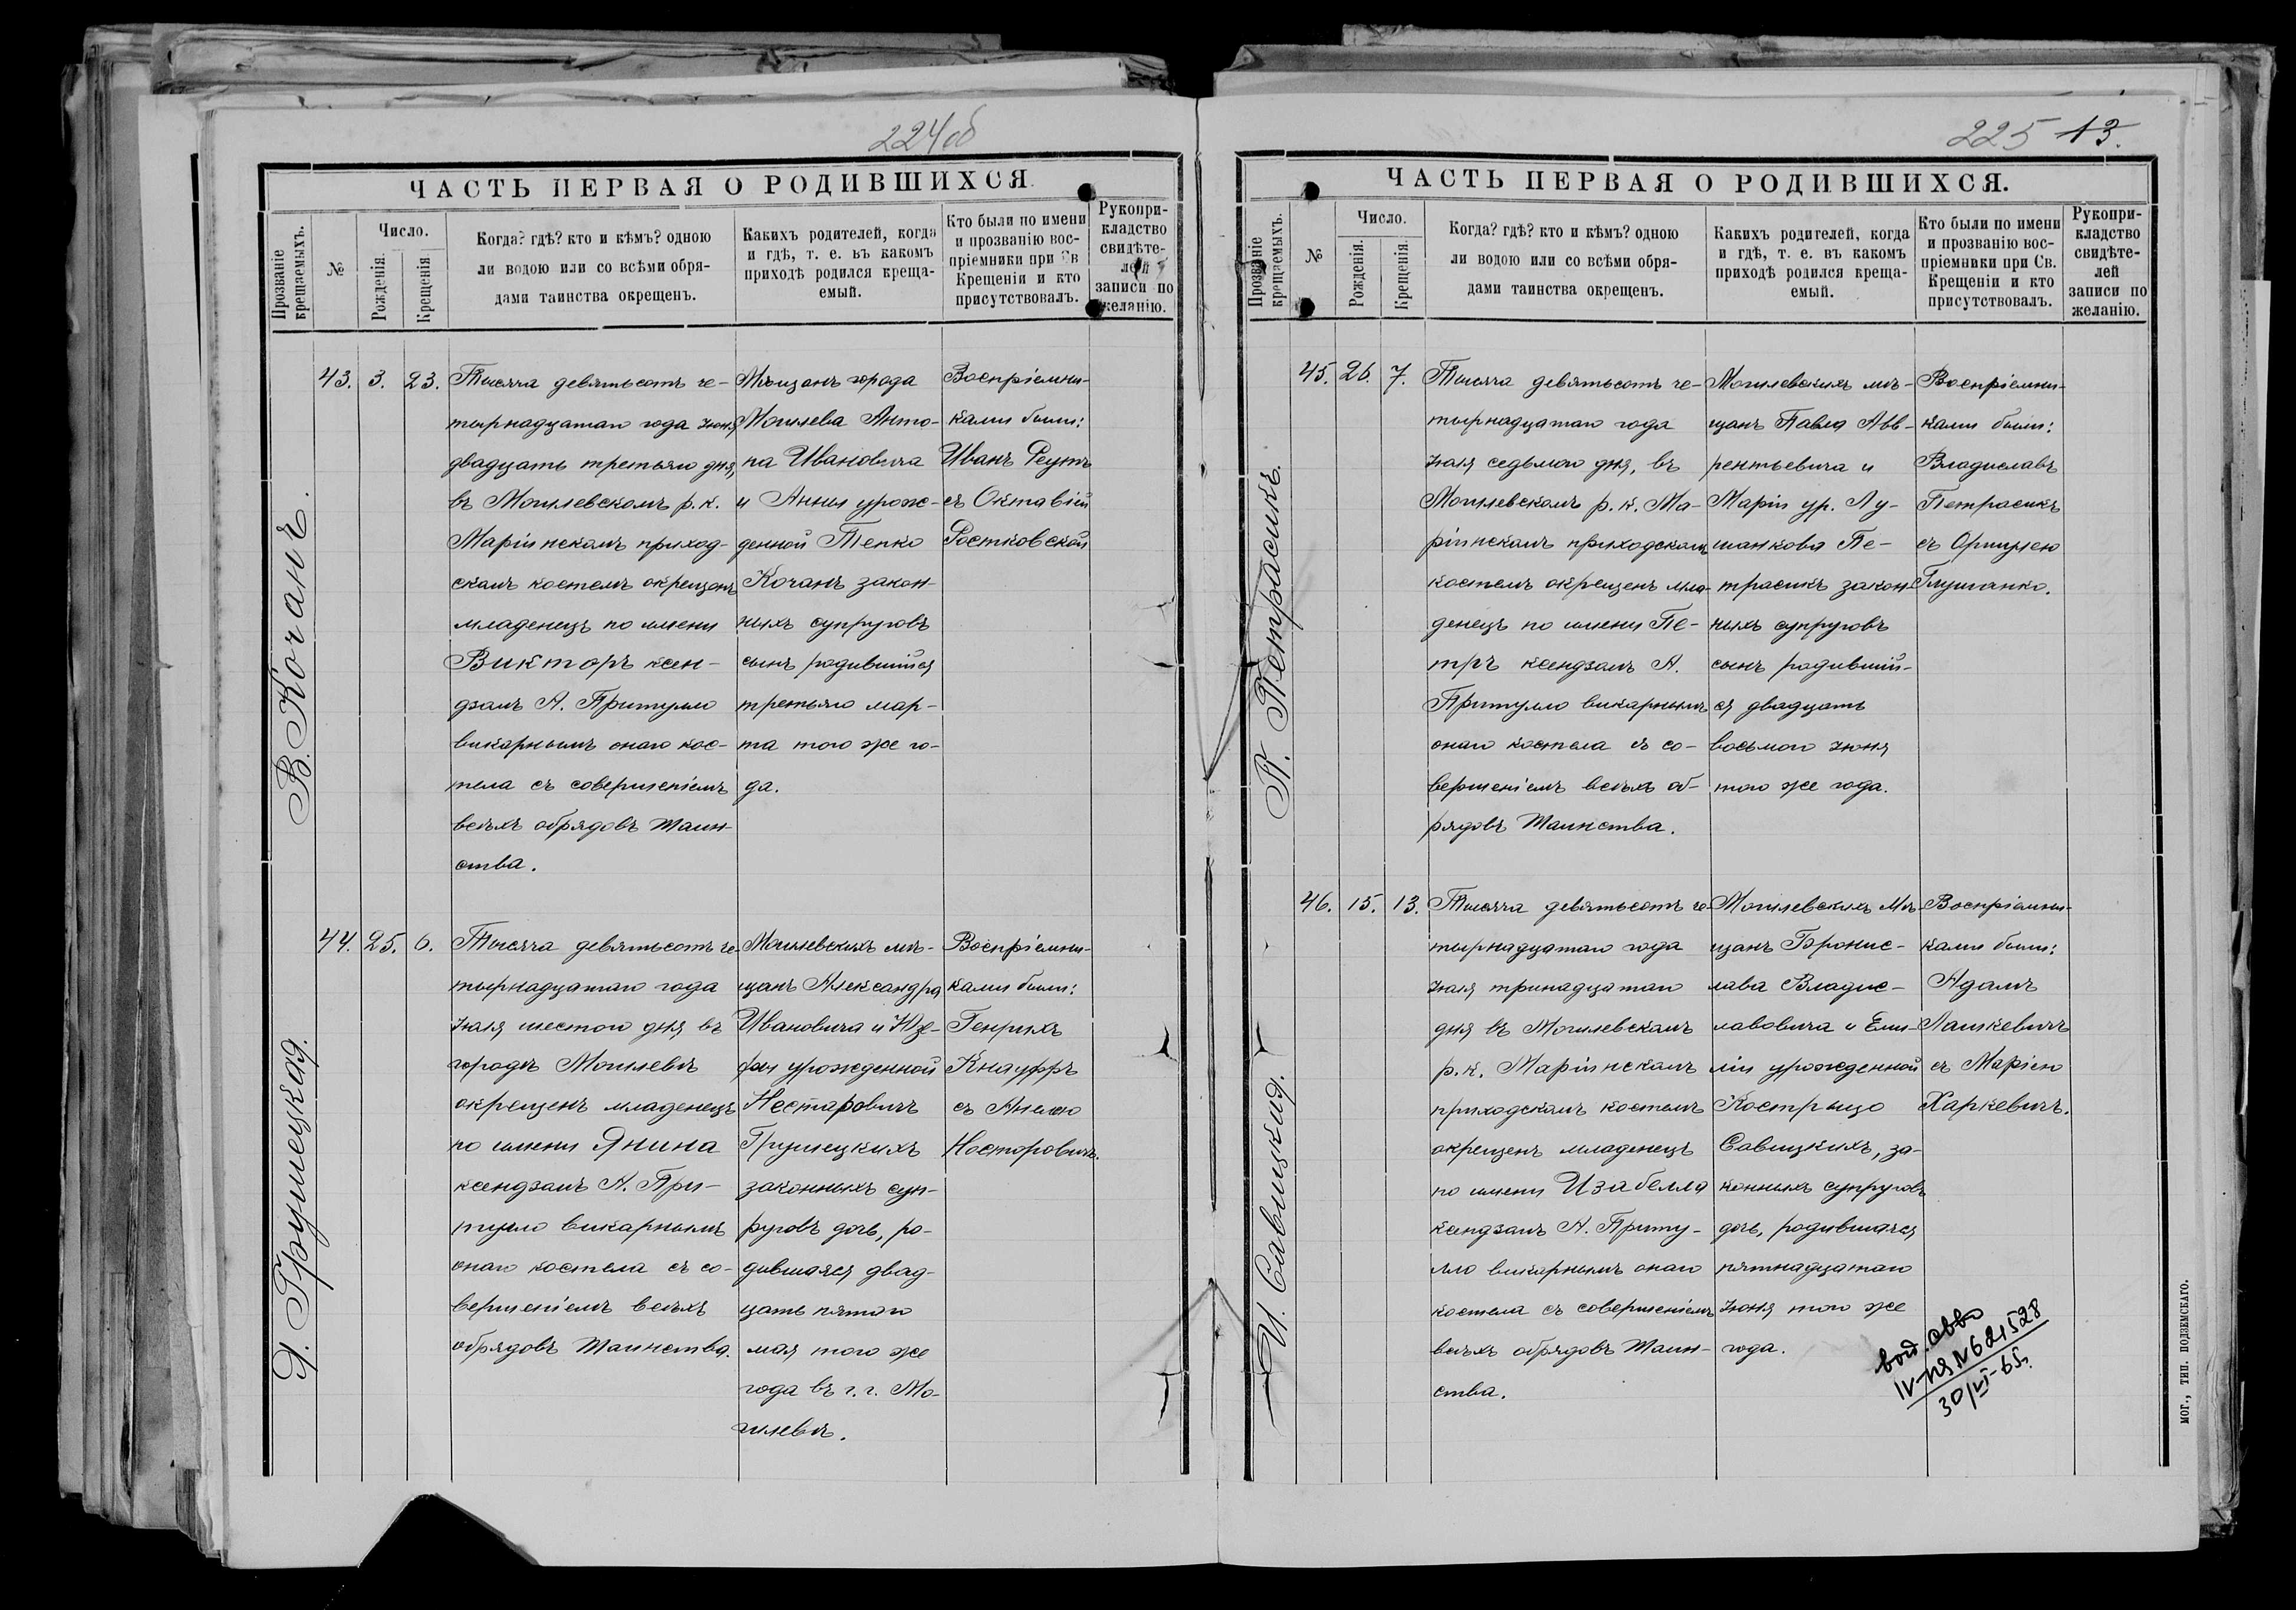 224об
ЧАСТЬ ПЕРВАЯ О РОДИВШИХСЯ.
Прозваніе крещаемыхъ.
№
Число.
Рожденія.
Крещенія
Когда? гдѣ? кто и кѣмъ? одною
ли водою или со всѣми обря-
дами таинства окрещенъ.
Какихъ родителей, когда
и гдѣ, т. е. въ какомъ
приходѣ родился креща-
емый.
Кто были по имени
и прозванію вос-
пріемники при Св
Крещеніи и кто
присутствовалъ.
Рукопри-
кладство
свидѣте-
лей
записи по
желанію.
В. Кочанъ.
43. 3. 23.
Тысяча девятьсотъ че-
тырнадцатаго года Іюня
двадцать третьяго дня,
въ Могилевскомъ р. к.
Маріинскомъ приход-
скомъ костелѣ окрещенъ
младенецъ по имени
Викторъ ксен-
дзомъ А. Притулло
викарнымъ онаго кос-
тела съ совершеніемъ
всѣхъ обрядовъ Таин-
ства.
Мѣщанъ города
Могилева Анто-
на Ивановича
и Анны урож-
денной Тепко
Кочанъ закон-
ныхъ супруговъ
сынъ родившійся
третьяго мар-
та того же го-
да.
Воспріемни-
ками были:
Иванъ Реутъ
съ Октавіей
Ростковской
Я. Грушецкая.
44. 25. 6.
Тысяча девятьсотъ че-
тырнадцатаго года
Іюля шестого дня въ
городѣ Могилевѣ
окрещенъ младенецъ
по имени Янина
ксендзомъ А. При-
тулло викарнымъ
онаго костела съ со-
вершеніемъ всѣхъ
обрядовъ Таинства.
Могилевскихъ мѣ-
щанъ Александра
Ивановича и Юзе-
фы урожденной
Нестаровичъ
Грушецкихъ
законныхъ суп-
руговъ дочь, ро-
дившаяся двад-
цать пятого
мая того же
года въ г. г. Мо-
гилевѣ.
Воспріемни-
ками были:
Генрихъ
Кнауффъ
съ Анелею
Несторовичъ.
225 13.
ЧАСТЬ ПЕРВАЯ О РОДИВШИХСЯ.
Прозваніе крещаемыхъ.
№
Число.
Рожденія.
Крещенія.
Когда? гдѣ? кто и кѣмъ? одною
ли водою или со всѣми обря-
дами таинства окрещенъ.
Какихъ родителей, когда
и гдѣ, т. е. въ какомъ
приходѣ родился креща-
емый.
Кто были по имени
и прозванію вос-
пріемники при Св.
Крещеніи и кто
присутствовалъ.
Рукопри-
кладство
свидѣте-
лей
записи по
желанію.
П. Петрасикъ.
45. 26. 7.
Тысяча девятьсотъ че-
тырнадцатаго года
Іюля седьмого дня, въ
Могилевскомъ р. к. Ма-
ріинскомъ приходскомъ
костелѣ окрещенъ мла-
денецъ по имени Пе-
тръ ксендзомъ А.
Притулло викарнымъ
онаго костела съ со-
вершеніемъ всѣхъ об-
рядовъ Таинства.
Могилевскихъ мѣ-
щанъ Павла Авв-
рентьевича и
Маріи ур. Лу-
шанкова Пе-
трасикъ закон-
ныхъ супруговъ
сынъ родившій-
ся двадцать
восьмого Іюня
того же года.
Воспріемни-
ками были:
Владиславъ
Петрасикъ
съ
Глушанко.
И. Савицкая.
46. 15. 13.
Тысяча девятьсотъ че-
тырнадцатаго года
Іюля тринадцатаго
дня въ Могилевскомъ
р. к. Маріинскомъ
приходскомъ костелѣ
окрещенъ младенецъ
по имени Изабелла
ксендзомъ А. Приту-
лло викарнымъ онаго
костела съ совершеніемъ
всѣхъ обрядовъ Таин-
ства.
Могилевскихъ мѣ-
щанъ Бронис-
лава Владис-
лавовича и Еми-
ліи урожденной
Кострыцо
Савицкихъ, за-
конныхъ супруговъ
дочь, родившаяся
пятнадцатаго
Іюня того же
года.
Воспріемни-
ками были:
Адамъ
Лашкевичъ
съ Маріею
Харкевичъ.
IV-ИЯ №621528
30/VI-65г.
МОГ., ТИП. ПОДЗЕМСКАГО.